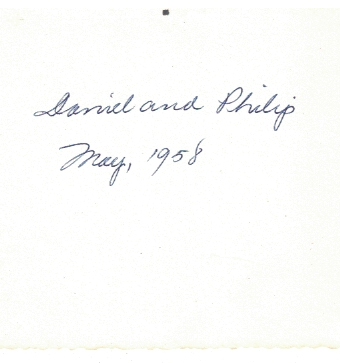 Daniel and Philip
May, 1958